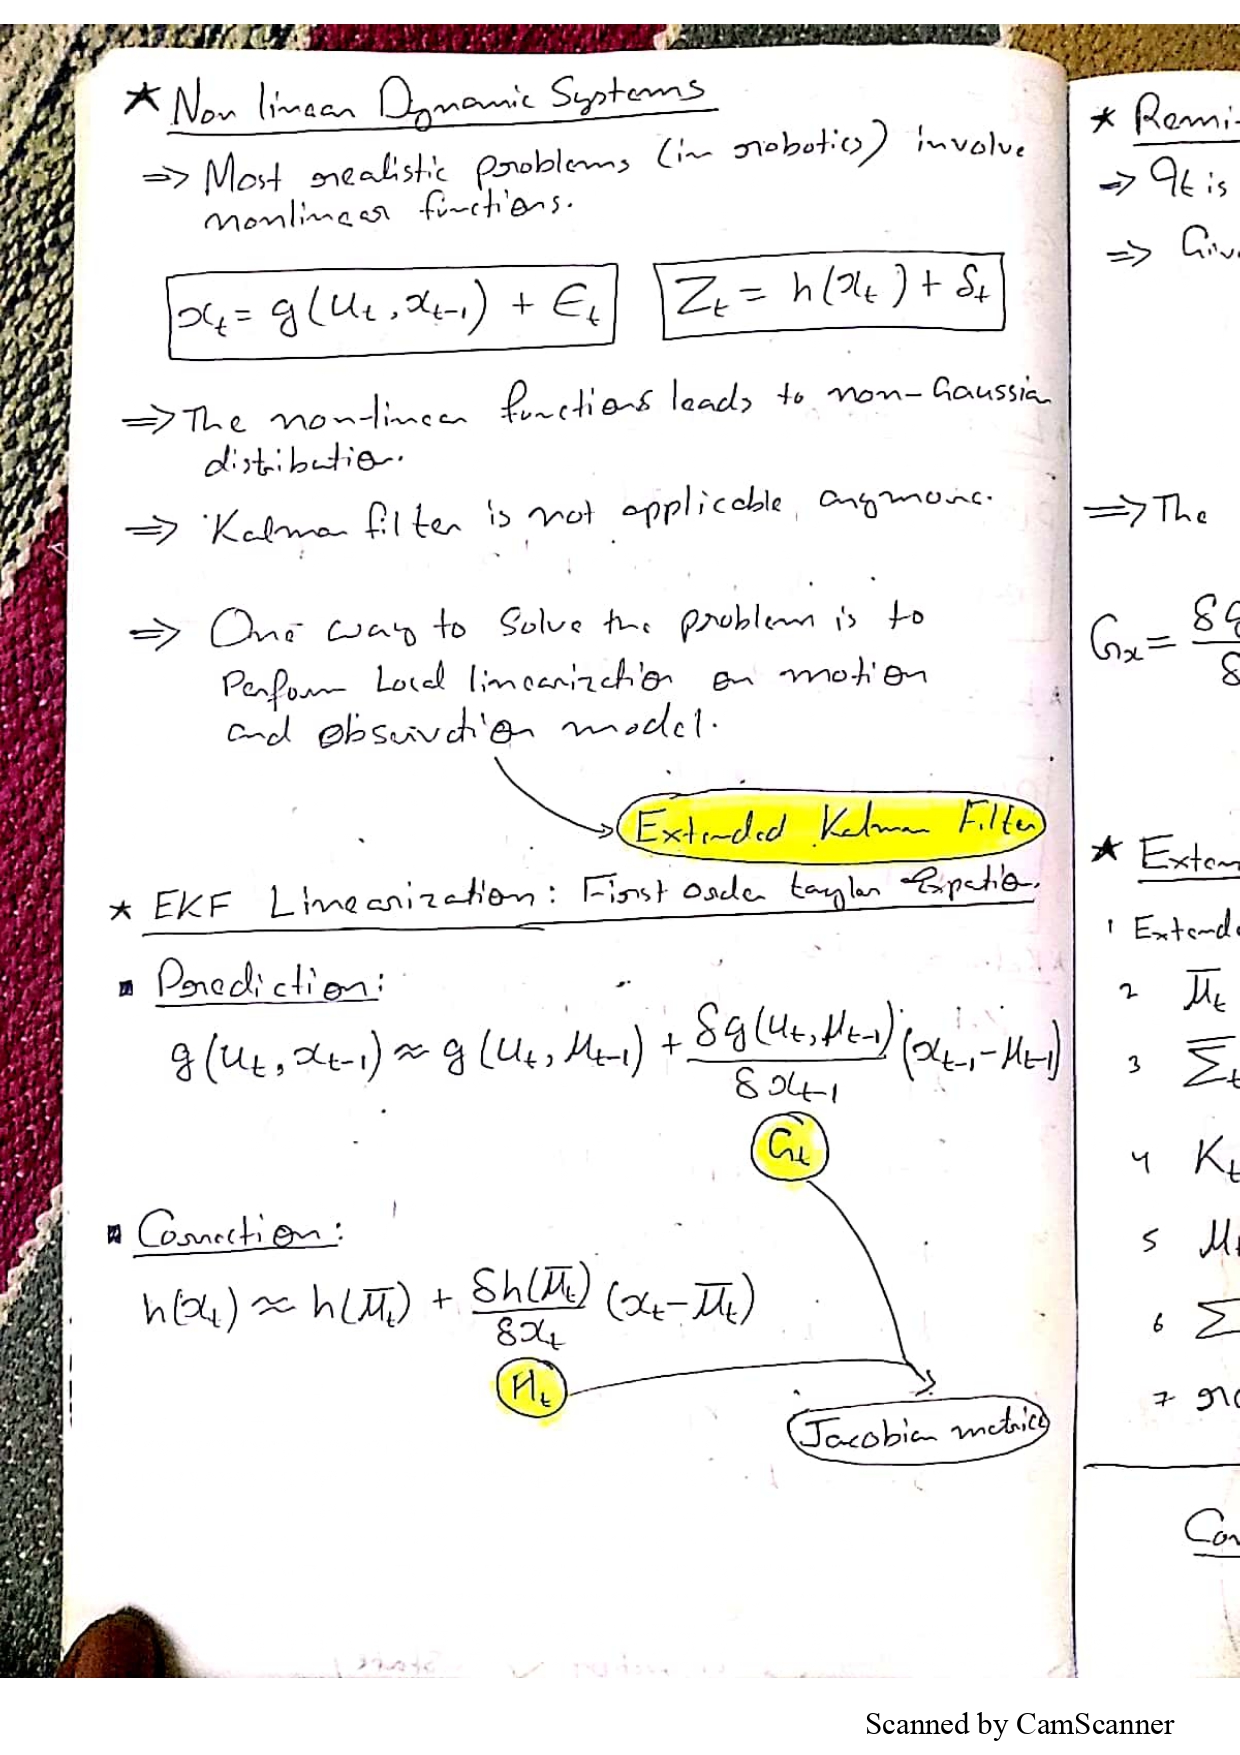 ★ Non linear Dynamic Systems
⇒ Most realistic problems (in robotics) involve
nonlinear functions.
x_t = g(u_t, x_{t-1}) + ϵ_t    Z_t = h(x_t) + δ_t
⇒ The non-linear functions leads to non-Gaussian
distribution.
⇒ Kalman filter is not applicable anymore.
⇒ One way to solve the problem is to
Perform Local linearization on motion
and observation model.
Extended Kalman Filter
★ EKF Linearization: First order taylor
Prediction:
g(u_t, x_{t-1}) ≈ g(u_t, μ_{t-1}) + δg(u_t, μ_{t-1}) / δx_{t-1} (x_{t-1} - μ_{t-1})
G_t
Correction:
h(x_t) ≈ h(μ̄_t) + δh(μ̄_t) / δx_t (x_t - μ̄_t)
H_t
Jacobian matrice
★ Remi-
⇒ It is
⇒ Giv
⇒ The
G_x = δg / δ
★ Exten
1 Extende
2 μ̄_t
3 Σ̄_t
4 K_t
5 μ_t
6 Σ
7 re
Cor
Scanned by CamScanner